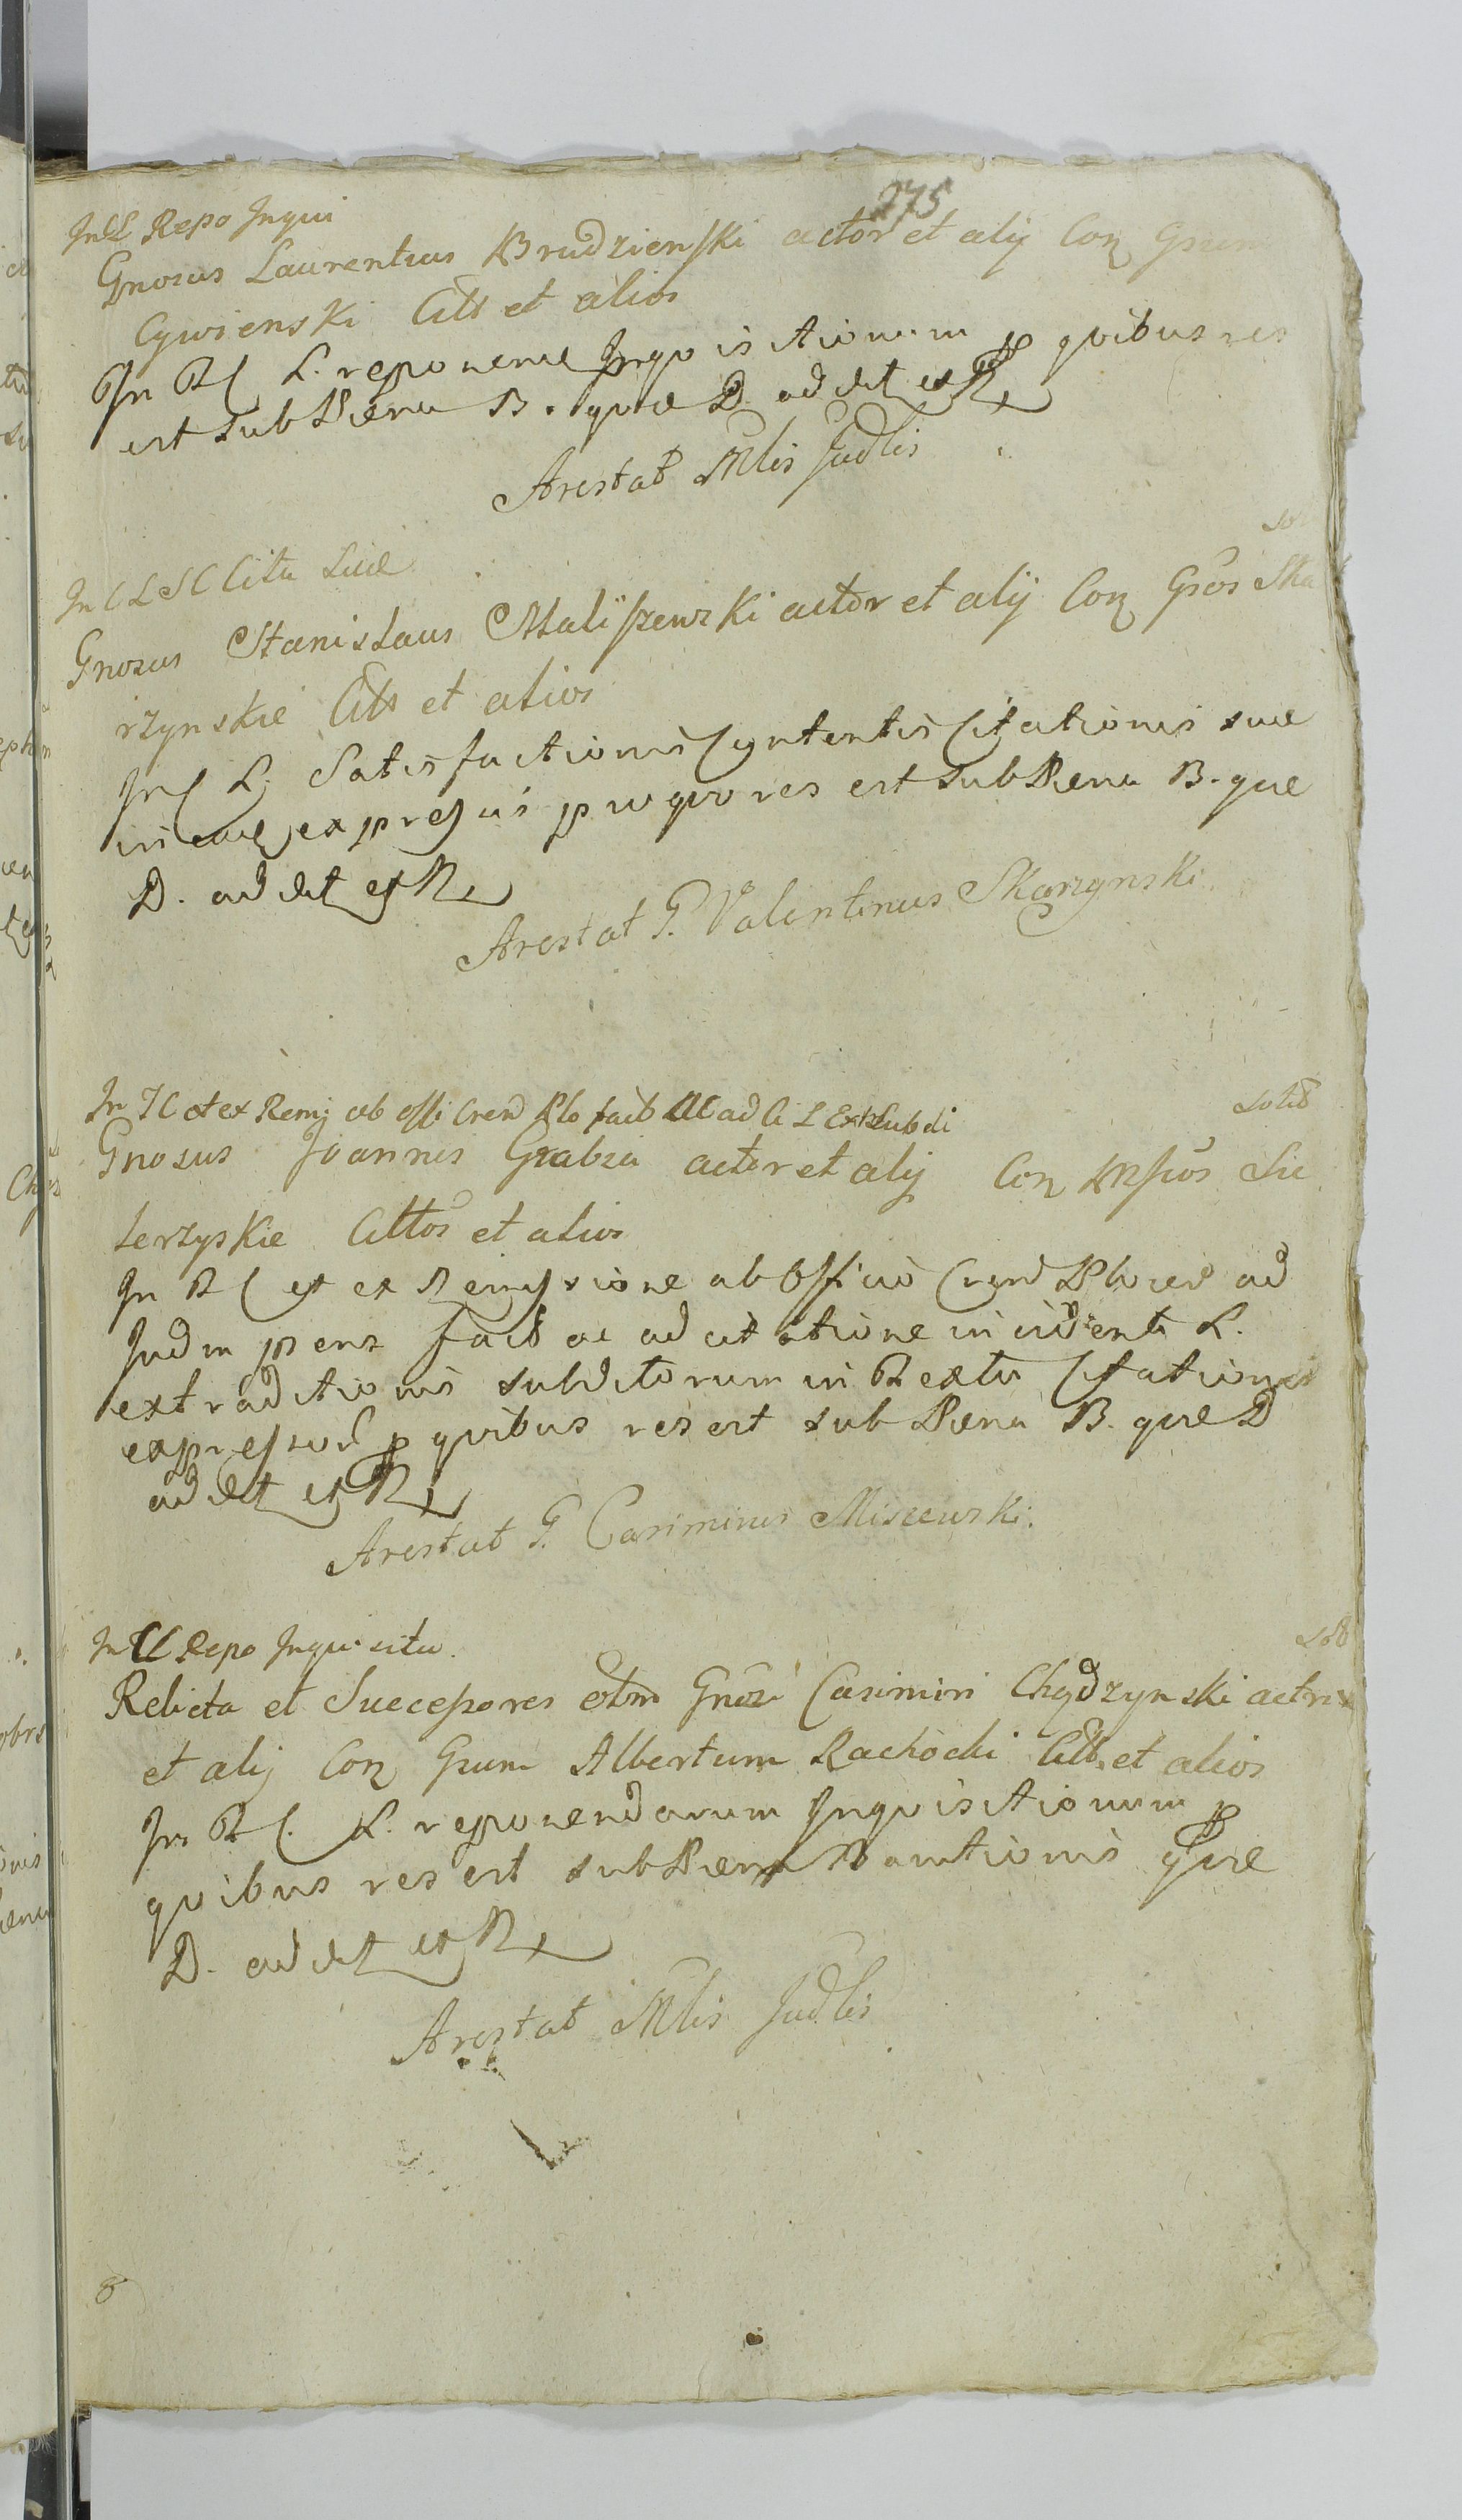 275
In Repo Inqui
Gnosus Laurentius Brudzienski actor et alij Con Gsum
Cywienski Citt et alios
In L. reponenae Inquisitionum p quibus res
est sub Paena B. quae D addet et
Arestat Mlis Judlis
In Cita suae
Gnosus Stanislaus Maliszewski actor et alij Con Gsos Ska
rzynskie Citt et alios
In L. Satisfactionis Contentis Citationis suae
in eaq expressis pro quo res est sub Paena B. quae
D. addet et
Arestat G. Valentinus Skarzynski
In et ex Remi ab offi Crend Plo fact ad Subdi
solid
Gnosus Joannes Grabia actor et alij Con Mfcos Sie
lerzyskie Cittos et alios
In et ex Remissione ab Officio Crend Ploced ad
Judm pens fact ac ad citatione incidenti L.
extraditionis subditorum in textu Citationis
expressod p quibus res est sub Paena B. quae D
addet et
Arestat G. Casimirus Miszewski.
In Repo Inquisitu.
Relicta et Successores olim Gnosi Casimiri Chądzynski actrix
et alij Con Gsum Albertum Rachocki Citt. et alios
In L. reponendarum Inquisitionum p
quibus res est sub Paena Bannitionis quae
D. addet et
Arestat Mlis Judlis
8